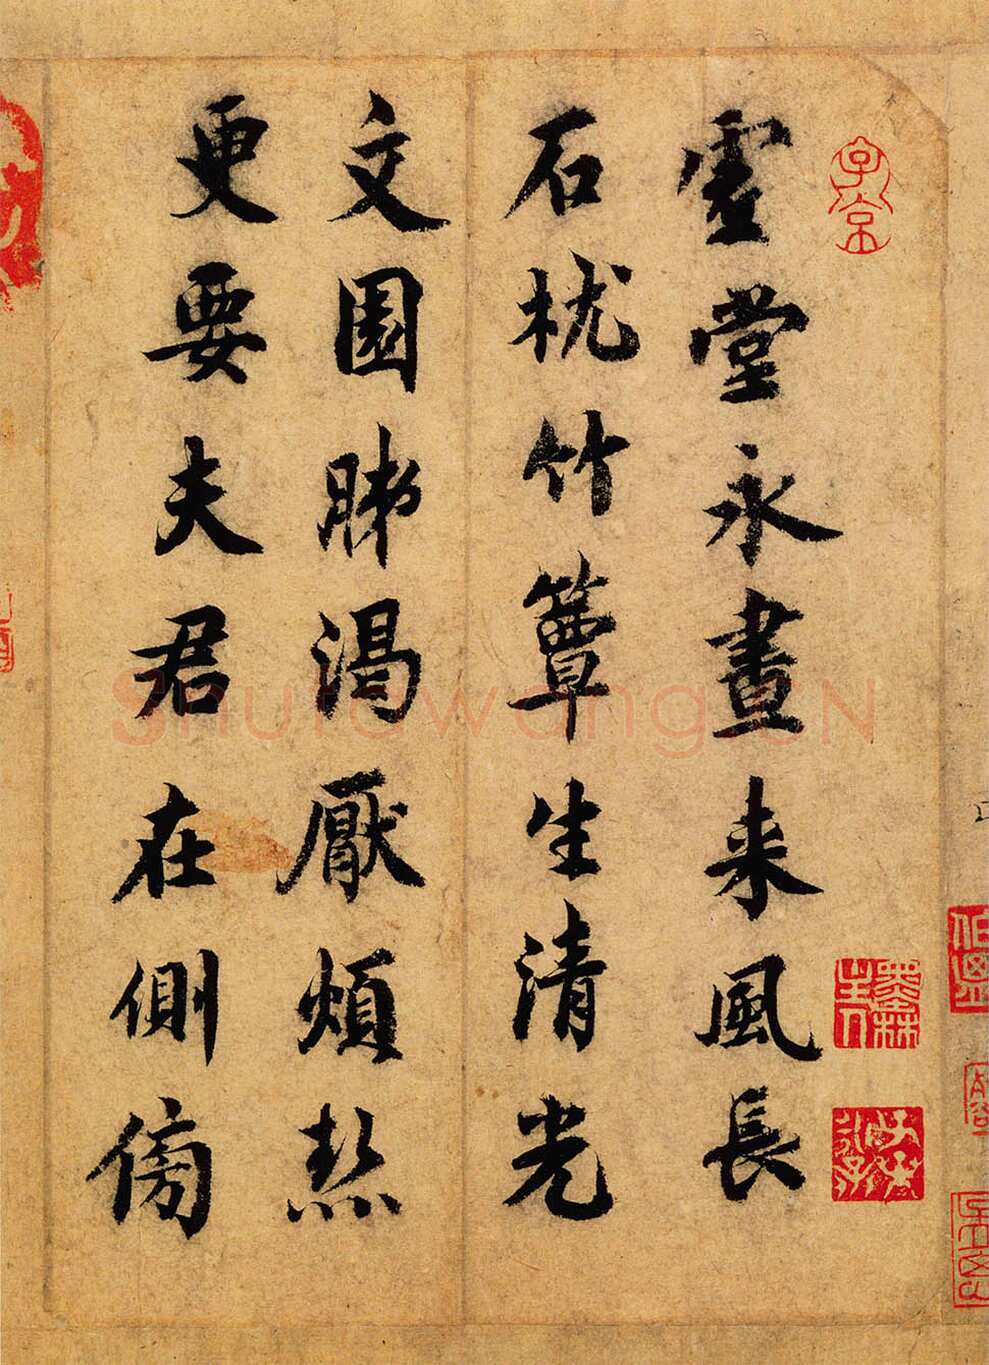 虚堂永晝来風長
石枕竹簟生清光
文園肺渴厭煩熱
更要夫君在側傍
子京
墨林
Shufawang.CN